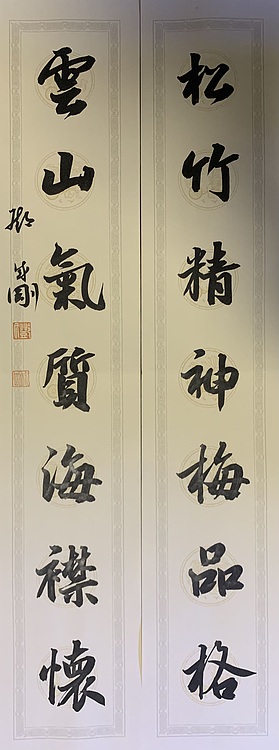 松竹精神梅品格
雲山氣質海襟懷